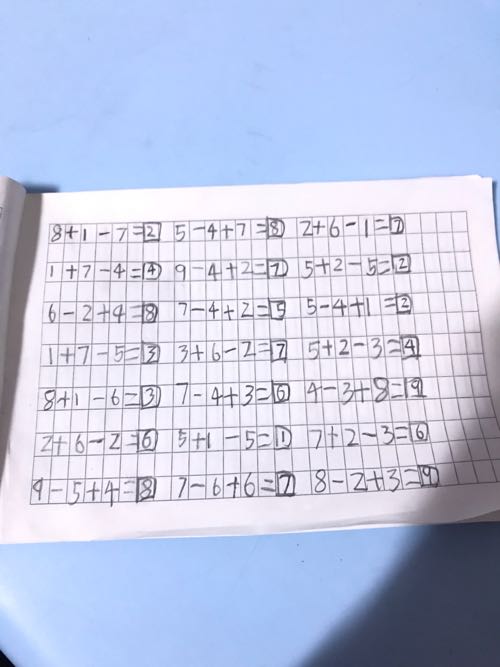 8+1-7=2 5-4+7=8 2+6-1=7
1+7-4=4 9-4+2=7 5+2-5=2
6-2+4=8 7-4+2=5 5-4+1=2
1+7-5=3 3+6-2=7 5+2-3=4
8+1-6=3 7-4+3=6 4-3+8=9
2+6-2=6 5+1-5=1 7+2-3=6
9-5+4=8 7-6+6=7 8-2+3=9